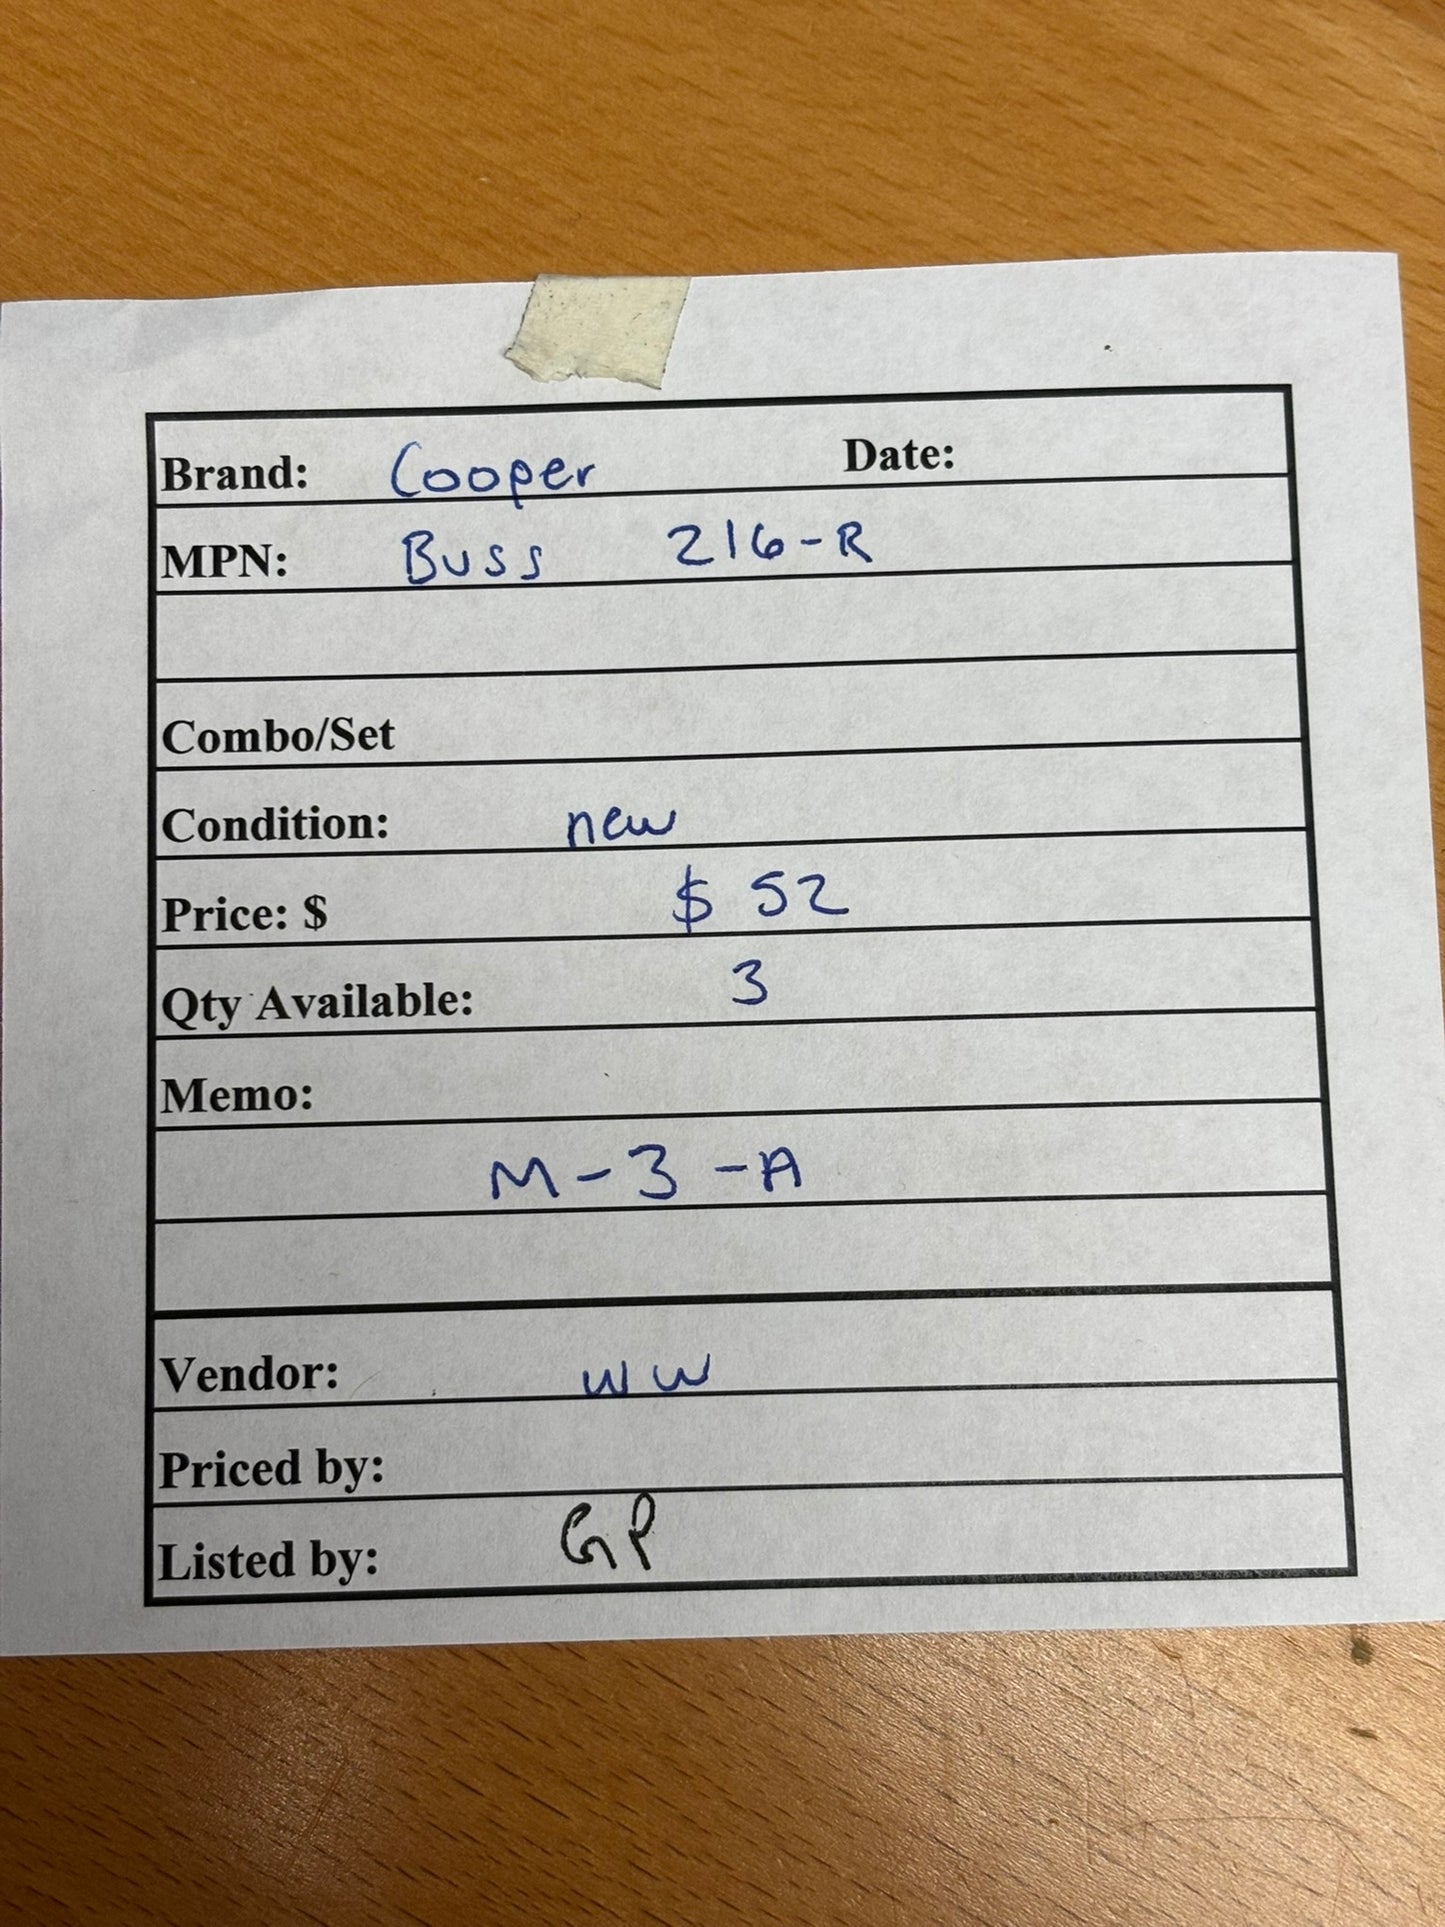 Brand: Cooper Date:
MPN: Buss 216-R
Combo/Set
Condition: new
Price: $ $ 52
Qty Available: 3
Memo:
M-3-A
Vendor: WW
Priced by:
Listed by: GP